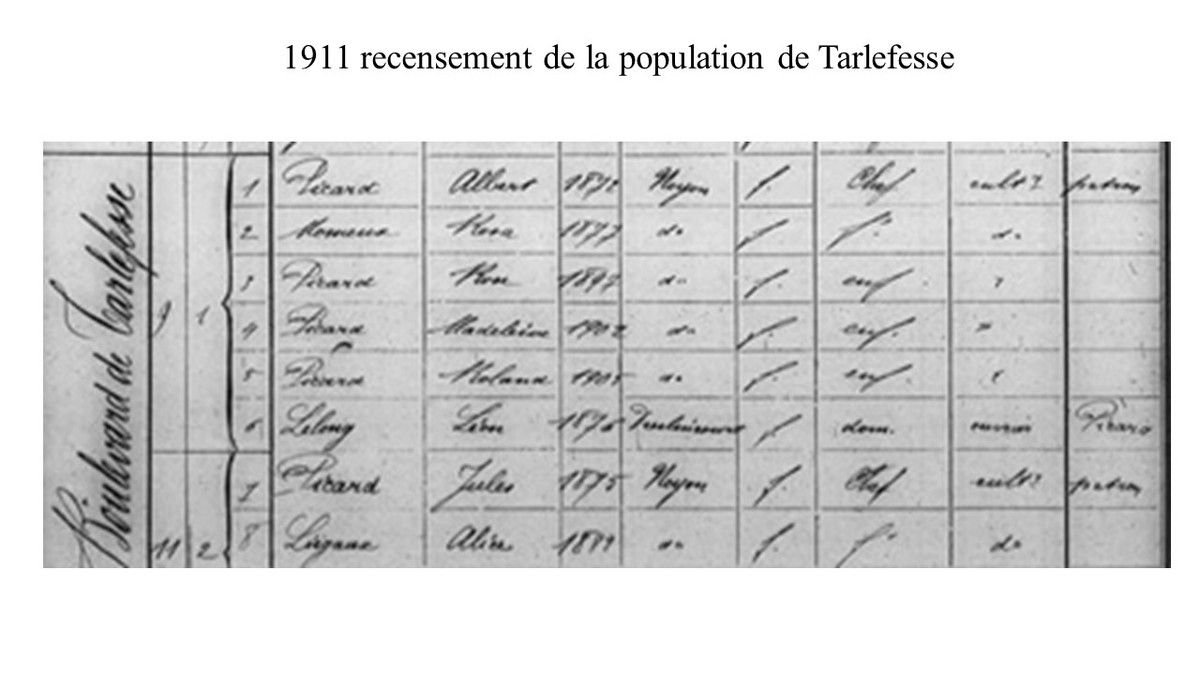 1911 recensement de la population de Tarlefesse
Boulevard de Tarlefesse
9 1
1 Picard Albert 1872 Noyon f. Chef cultr patron
2 Rosa 1877 do f. fe do
3 Picard Rose f. enf. "
4 Picard Madeleine 1902 do f. enf. "
5 Picard Roland 1905 do f. enf. "
6 Lelong Léon 1876 f dom. ouvrier Picard
7 Picard Jules 1875 Noyon f. Chef cultr patron
11 2 8 Alice do f. fe do